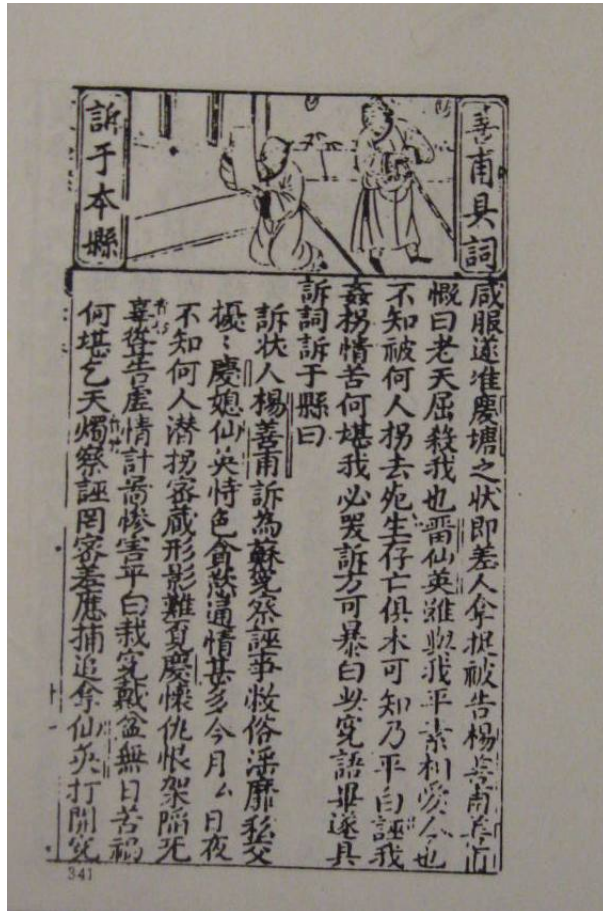 善甫具詞
訴于本縣
咸服遂准慶塘之状即差人拿捉被告楊善甫善甫
慨曰老天屈殺我也雷仙英雖與我平素相愛今也
不知被何人拐去死生存亡俱未可知乃平白誣我
姦拐情苦何堪我必哭訴方可暴白此冤語畢遂具
訴詞訴于縣曰
訴状人楊善甫訴為蘇冤察誣事敝俗淫靡私交
擾〻慶媳仙英恃色貪慾通情甚多今月厶日夜
不知何人潜拐密藏形影難覓慶懷仇恨架陷无
辜聳告虛情計啚慘害平白栽冤戴盆無日苦禍
何堪乞天燭察誣罔密差應捕追拿仙英打開冤
341